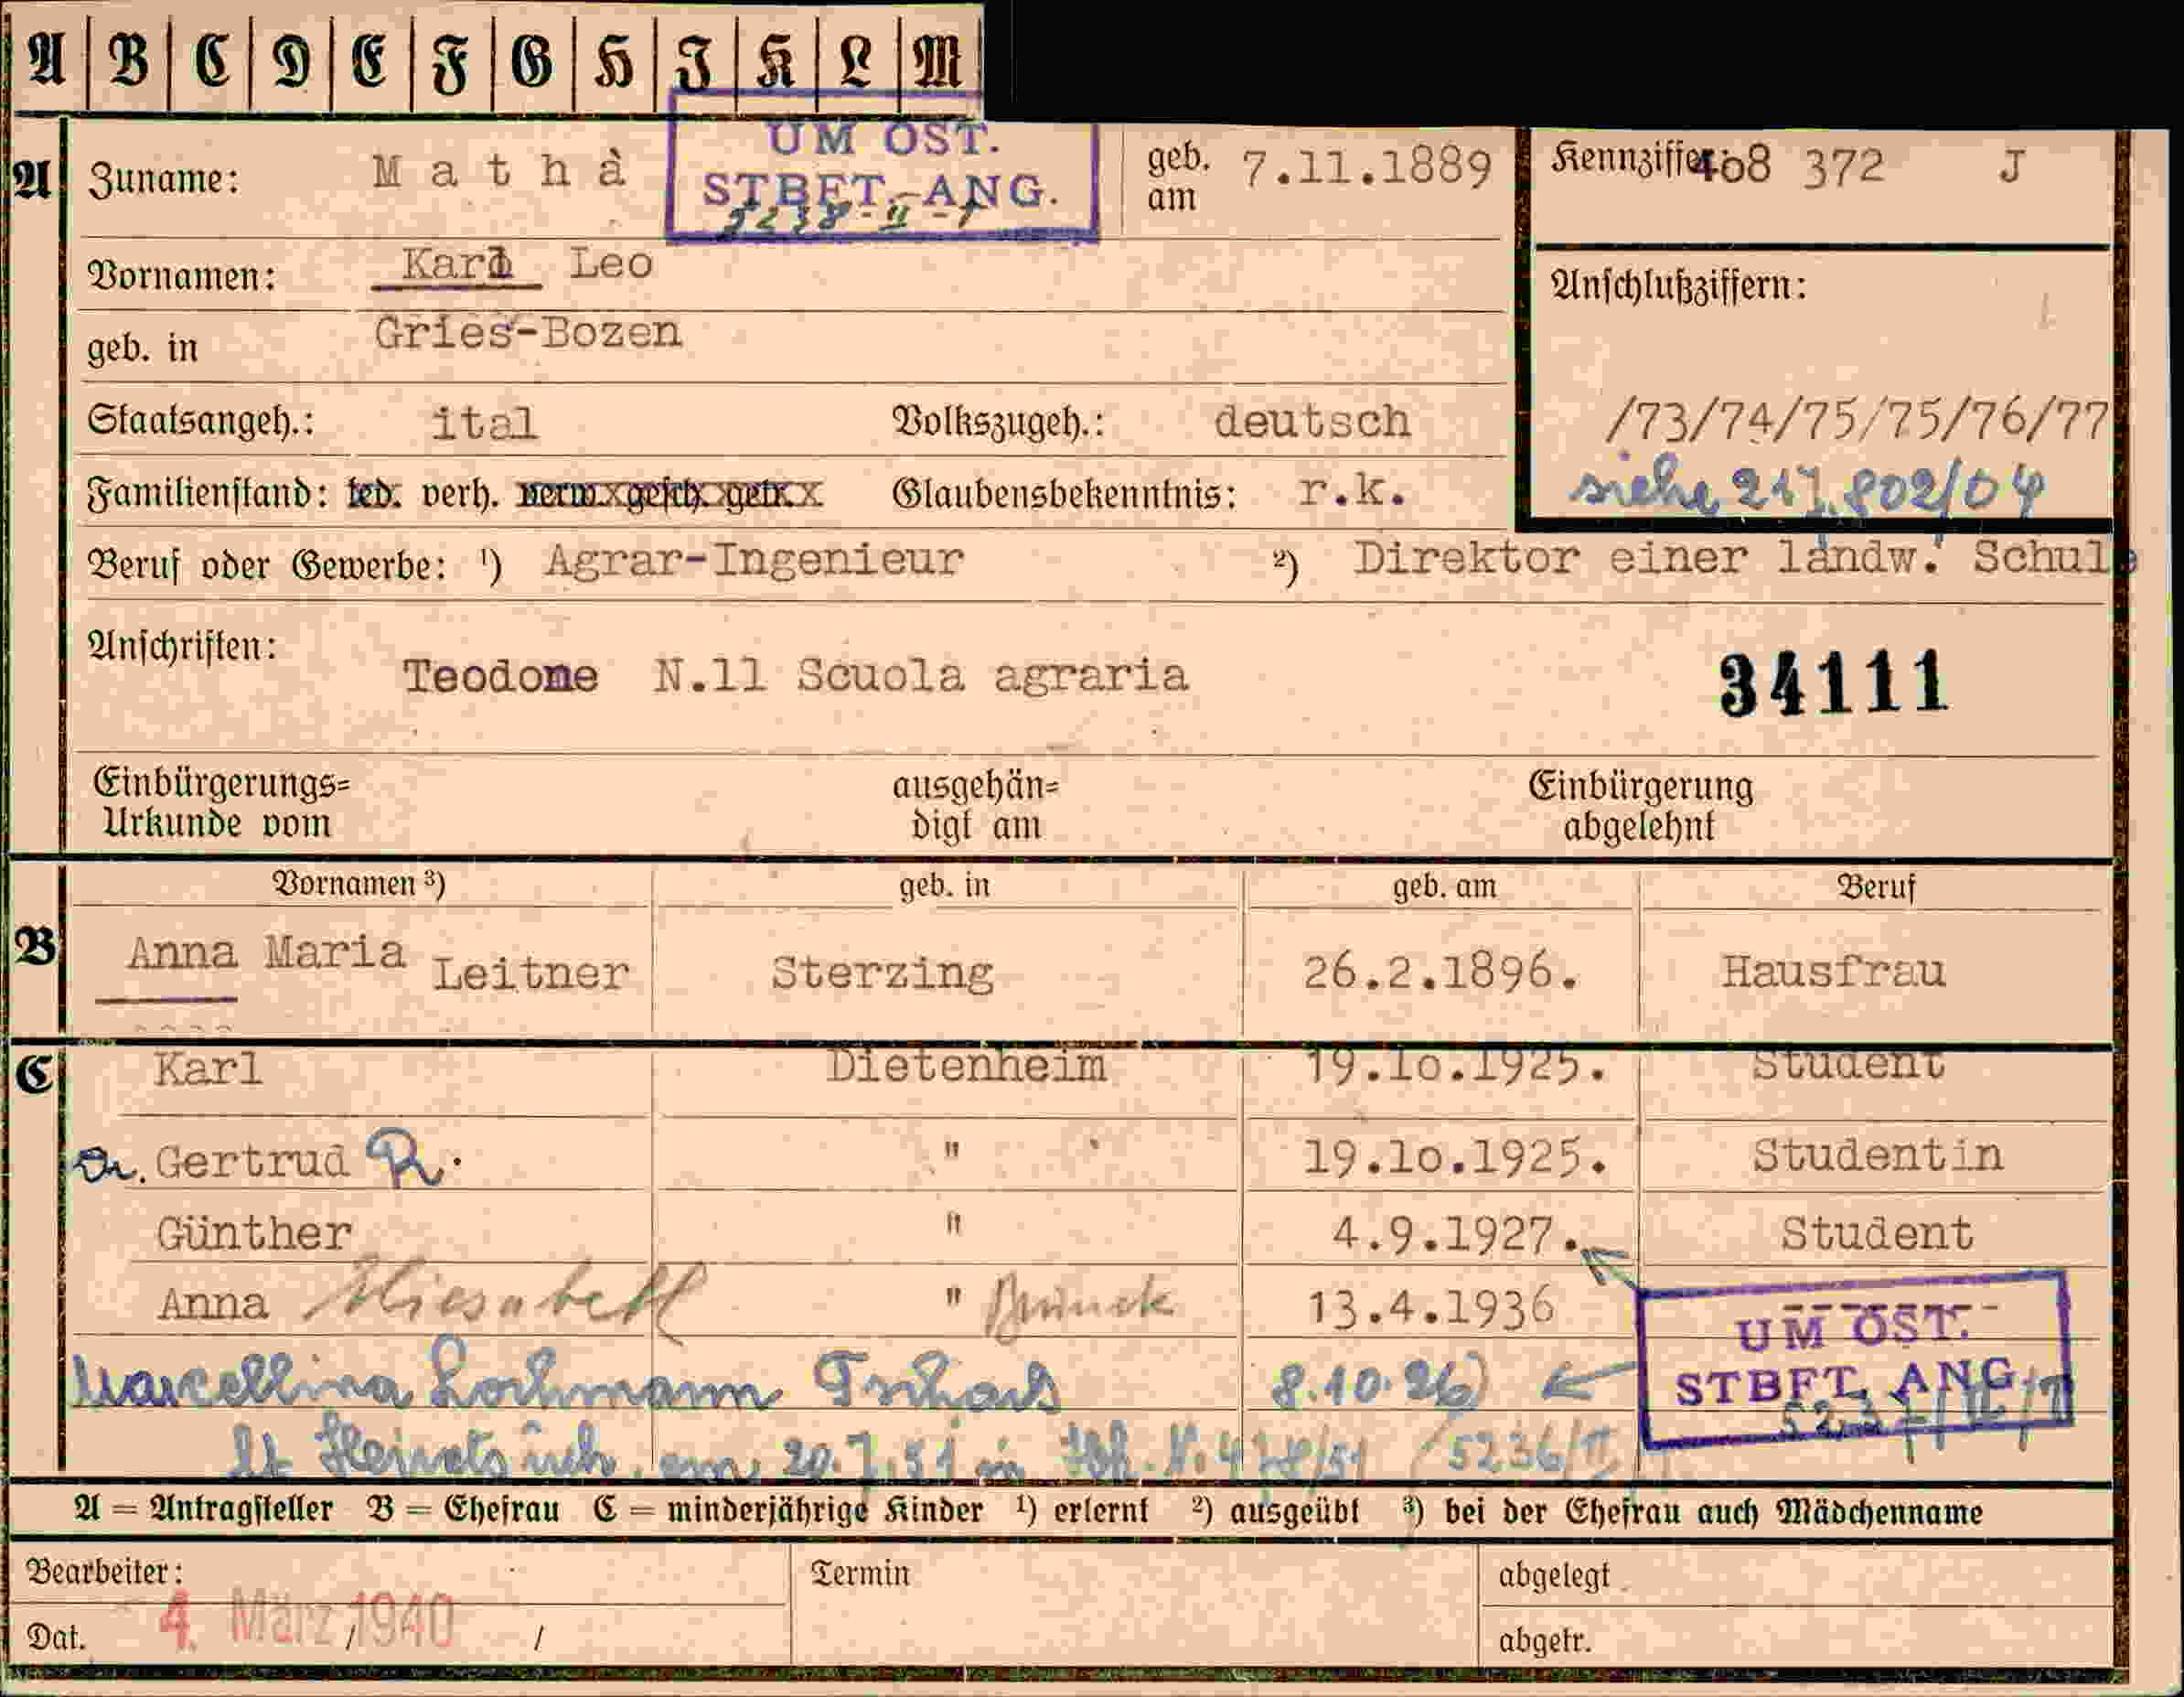 A B C D E F G H I K L M
A Zuname: Mathà UM ÖST. STBFT.-ANG. geb. am 7.11.1889 Kennziffer: 408 372 J
Vornamen: Karl Leo
Anschlußziffern:
geb. in Gries-Bozen
Staatsangeh.: ital Volkszugeh.: deutsch /73/74/75/75/76/77
Familienstand: led. verh. verw. gesch. getr. Glaubensbekenntnis: r.k. siehe 217.802/04
Beruf oder Gewerbe: ¹) Agrar-Ingenieur ²) Direktor einer landw. Schule
Anschriften: Teodone N.11 Scuola agraria 34111
Einbürgerungs= ausgehän= Einbürgerung
Urkunde vom digt am abgelehnt
Vornamen ³) geb. in geb. am Beruf
B Anna Maria Leitner Sterzing 26.2.1896. Hausfrau
C Karl Dietenheim 19.10.1925. Student
Gertrud " 19.10.1925. Studentin
Günther " 4.9.1927. Student
Anna Eliesabeth " Bruneck 13.4.1936
UM ÖST.
STBFT. ANG.
Marcellina Lochmann Tschars 8.10.26)
lt. 20.7.51 in 5236/II
A = Antragsteller B = Ehefrau C = minderjährige Kinder ¹) erlernt ²) ausgeübt ³) bei der Ehefrau auch Mädchenname
Bearbeiter: Termin abgelegt
Dat. 4. März 1940 / / abgetr.